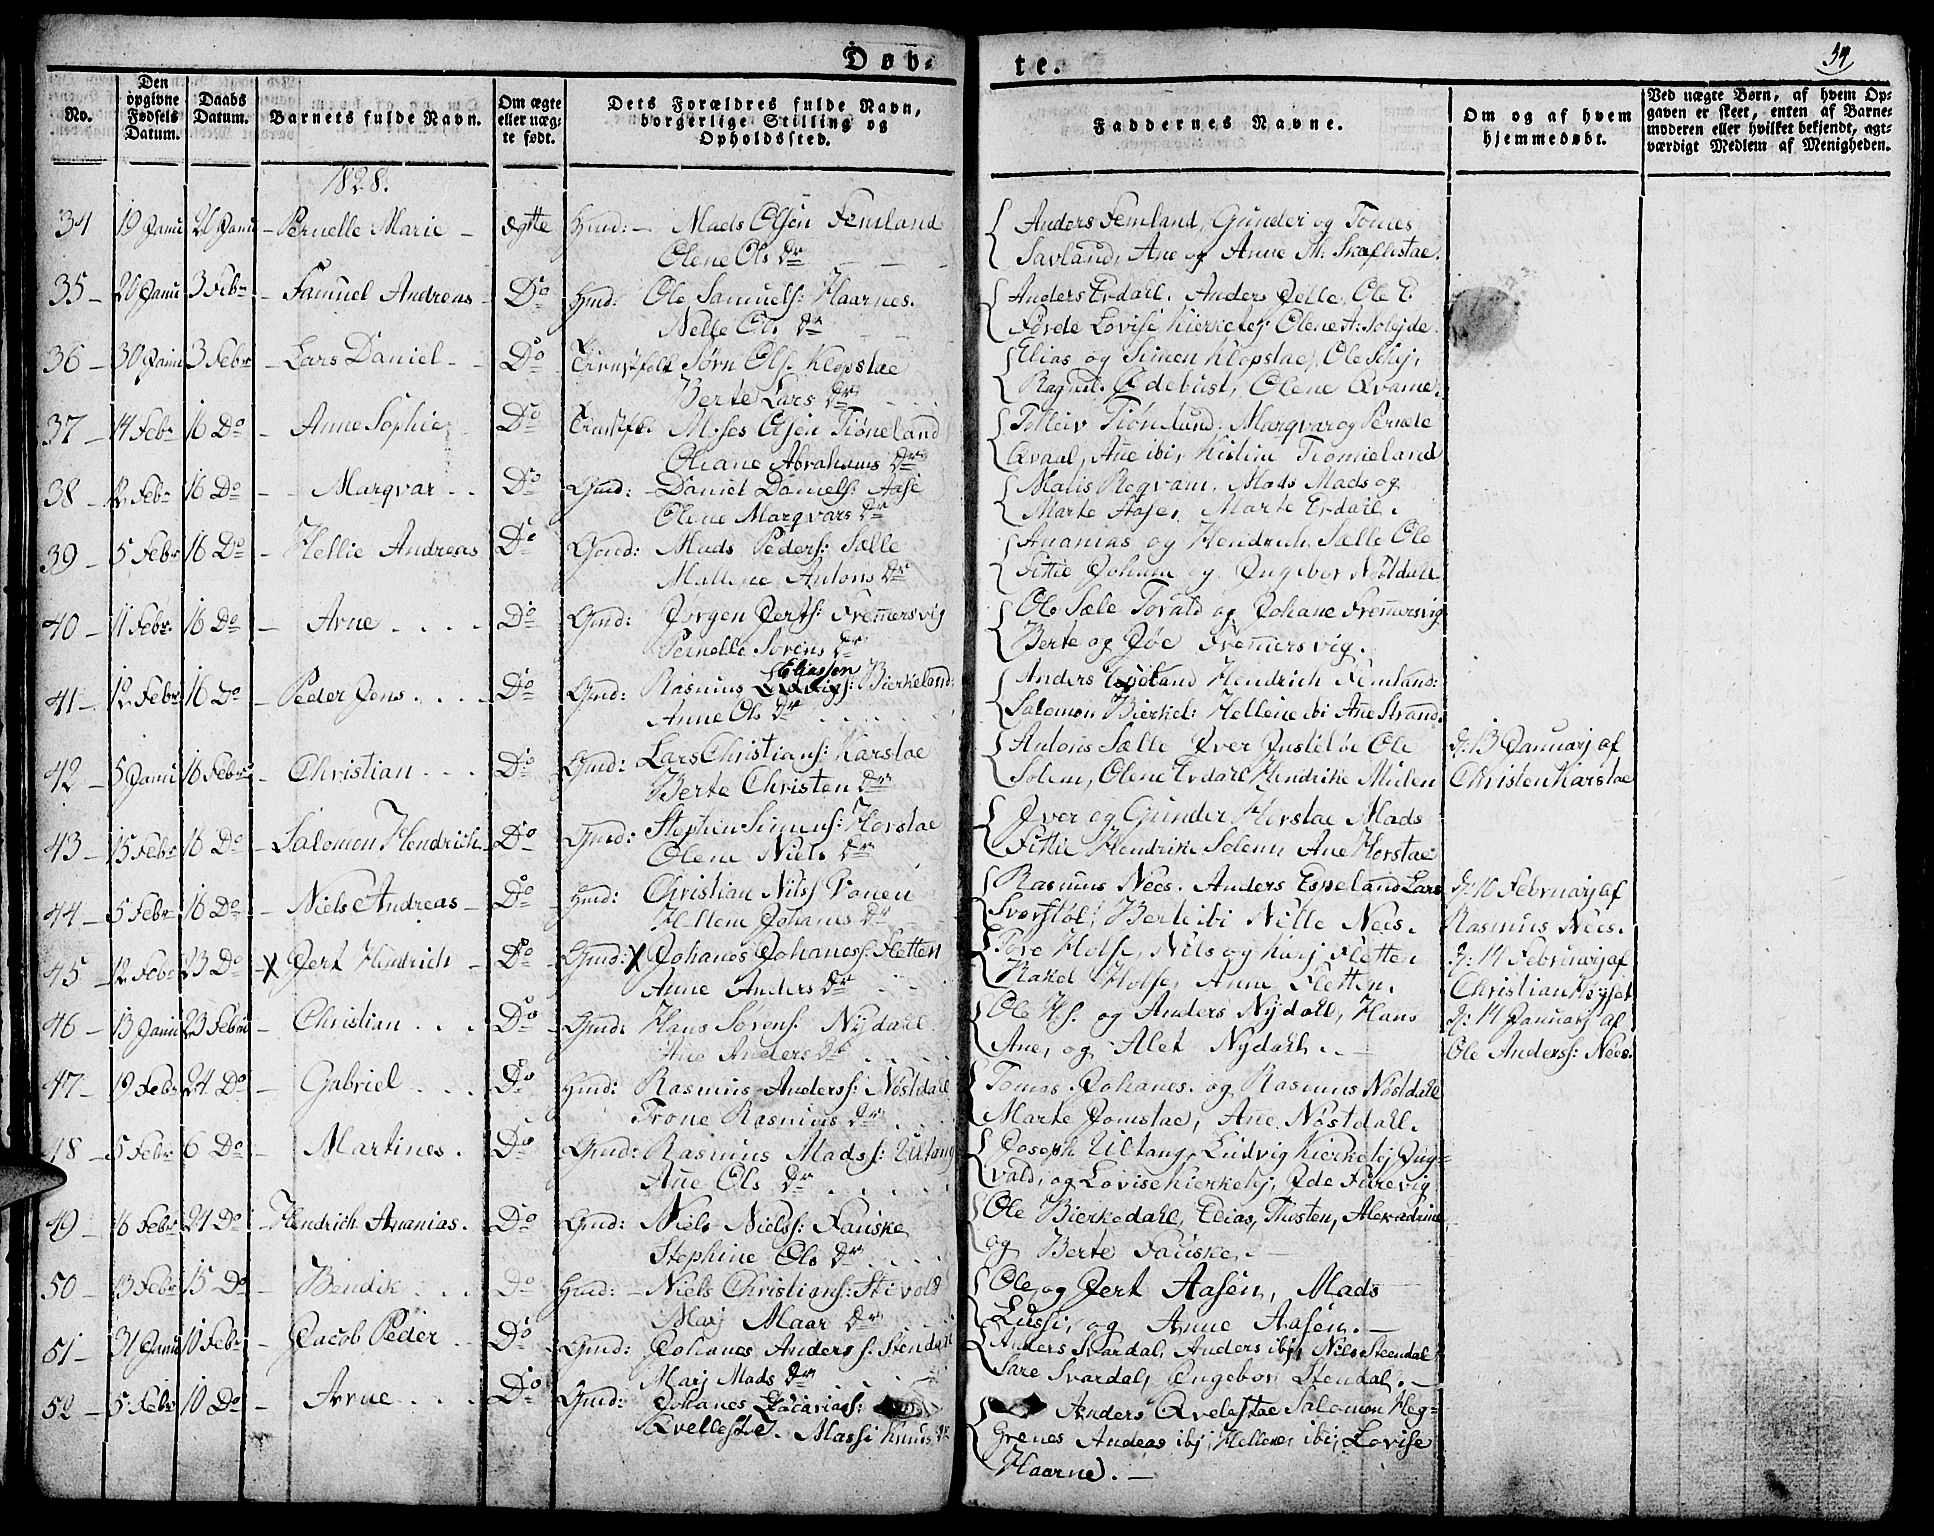 Døb-
te.
54
No.
Den opgivne Fødsels Datum.
Daabs Datum.
Barnets fulde Navn.
Om ægte eller uægte født.
Dets Forældres fulde Navn, borgerlige Stilling og Opholdssted.
Faddernes Navne.
Om og af hvem hjemmedøbt.
Ved uægte Børn, af hvem Opgaven er skeet, enten af Barnemoderen eller hvilket bekjendt, agtværdigt Medlem af Menigheden.
1828.
34 19 Janu 20 Janu - Pernelle Marie - ægtte Gmd: - Mads Olsen Femland
Olene Ols Dr
Anders Femland, Gunder og Tomes
Savland, Ane og Anne M. Skaflestae.
35 - 20 Janu 3 Febr - Samuel Andreas - Do Gmd: Ole Samuels: Haarnes.
Nelle Ols Dr
Anders Erdahl. Anders Jelle, Ole E.
Førde Lovise Kierkeløj Olene A: Solejde.
36 - 30 Janu 3 Febr - Lars Daniel - Do Søren Ols. Klopstae
Berte Lars Dr
Elias og Simen Klopstae, Ole
Ragnil. Ødebust, Olene Qvame.
37 - 14 Febr 16 Do - Anne Sophie - Do Moses Olsen Tiøneland
Oliane Abrahams Dr
Tolleiv Tiønelund. Marqvar og Pernele
Qvaal, Ane ibi, Kistine Tionneland
38 - 12 Febr 16 Do - Marqvar - Do Gmd: - Daniel Daniels: Aase
Olene Marqvars Dr
Malis Mads Mads og
Marte Aase, Marte Erdahl.
39 - 5 Febr 16 Do - Hellie Andreas Do Gmd: Mads Peders: Sælle
Mallene Antonis Dr
Ananias og Hendrich Sælle Ole
Fittie Johane og Ingebor Nøstdahl
40 - 11 Febr. 16 Do - Arne Do Gmd: Jørgen Jerts: Fremersvig
Pernelle Sørens Dr
Ole Sæle Torald og Johane Fremersvig
Berte og Jøe Fremersvig.
41 - 12 Febr 16 Do - Peder Jens Do Gmd: Rasmus Eliassen Bierkeland:
Anne Ols Dr
Anders Espeland Hendrich Femland:
Salomon Bierkel: Hellene ibi Ane Strand.
42 - 5 Janu 16 Febru - Christian Do Gmd: Lars Christians: Karstae
Berte Christen Dr
Antonis Sælle Iver Ole
Solem, Olene Erdahl Hendrike Mulen
d: 13 Januarj af
Christen Karstae
43 - 15 Febr 16 Do - Salomon Hendrich - Do Gmd: Stephen Simens: Horstae
Olene Niels Dr
Iver og Gunder Horstae Mads
Fittie Hendrike Solem Ane Horstae
44 - 5 Febr 16 Do - Niels Andreas - Do Gmd: Christian Nils Vonen
Hellene Johanis Dr
Rasmus Nees. Anders Espeland Lars
Berte ibi Nille Nees.
d: 10 Februarj af
Rasmus Nees.
45 - 12 Febr 23 Do - X Jert Hindrich - Do Gmd: X Johanes Johaness: Fletten
Anne Anders Dr
Tore Holse, Nils og Marj Fletten
Rakel Holse, Anne Fletten.
d: 14 Februarj af
Christian
46 - 13 Janu 23 Febru - Christian Do Gmd: Hans Sørens. Nydahl
Ane Anders Dr
Ole Hs. og Anders Nydahl, Hans
Ane, og Alet Nydahl. -
d: 14 Januarj af
Ole Anderss: Nees.
47 - 19 Febr 24 Do - Gabriel Do Gmd: Rasmus Anderss: Nøstdahl
Trone Rasmus Dr
Tomas Johanes. og Rasmus Nøstdahl
Marte Jomstae, Ane Nøstdahl.
48 - 5 Febr 6 Do - Martines. Do Gmd: Rasmus Madss: Ultang
Ane Ols Dr
Joseph Ultang, Ludvig Kierkeløj Ing=
vald, og Lovise Kierkeløj, Ide Furevig
49 - 16 Febr 24 Do - Hendrich Ananias. Do Gmd: Niels Nielss: Fauske
Stephine Ols Dr
Ole Bierkedahl, Elias, Thosten, Alexadrine
og Berte Fauske. -
50 - 13 Febr 15 Do - Bendik Do Gmd: - Niels Christians: Stivold
Marj Maar Dr
Ole og Jert Aasen, Mads
Lussi, og Anne Aasen. -
51 - 31 Janu 10 Febr - Jacob Peder Do Gmd: Johanes Anderss: Stendahl
Marj Mads Dr
Anders Svardal, Anders ibj, Nils Steendal
Sare Svardal, Ingebor Stendal. -
52 - 5 Febr 10 Do - Arne Do Gmd: Johanes Zacariass:
Qvelleste. Massi Knuds Dr
Anders Qvelestae Salomon Heg=
Grenes Andeas ibj, Hellene ibj, Lovise
Haarne). -